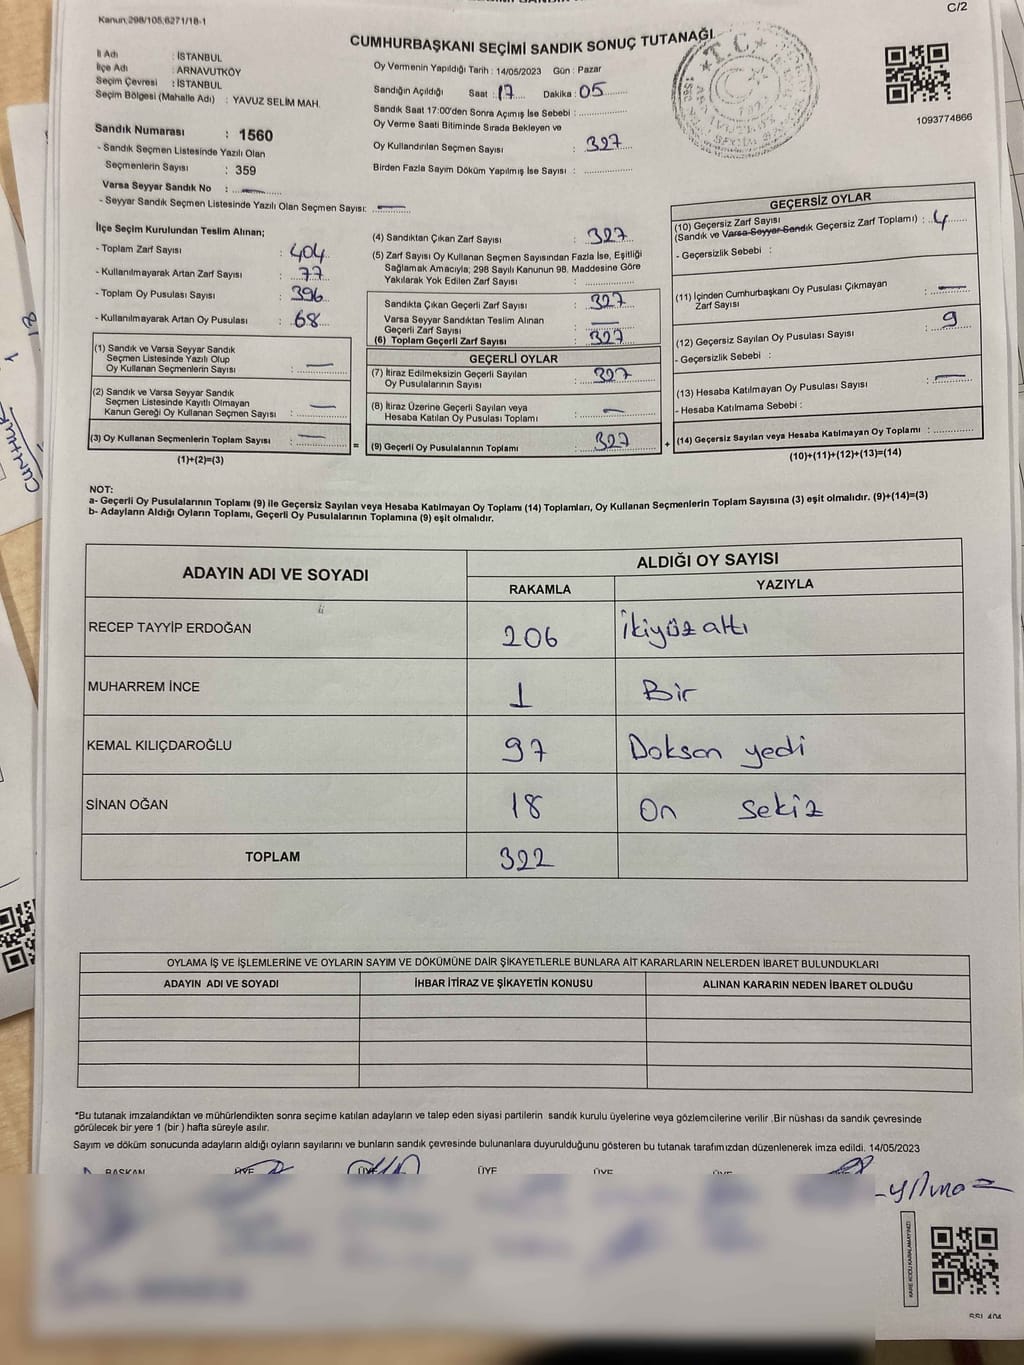 C/2
Kanun:298/105,6271/18-1
CUMHURBAŞKANI SEÇİMİ SANDIK SONUÇ TUTANAĞI
İl Adı : İSTANBUL
İlçe Adı : ARNAVUTKÖY
Seçim Çevresi : İSTANBUL
Seçim Bölgesi (Mahalle Adı) : YAVUZ SELİM MAH.
Oy Vermenin Yapıldığı Tarih : 14/05/2023 Gün : Pazar
Sandığın Açıldığı Saat : 17 Dakika : 05
Sandık Saat 17:00'den Sonra Açımış İse Sebebi :
Oy Verme Saati Bitiminde Sırada Bekleyen ve
Oy Kullandırılan Seçmen Sayısı : 327
Birden Fazla Sayım Döküm Yapılmış İse Sayısı :
1093774866
Sandık Numarası : 1560
- Sandık Seçmen Listesinde Yazılı Olan
Seçmenlerin Sayısı : 359
Varsa Seyyar Sandık No : —
- Seyyar Sandık Seçmen Listesinde Yazılı Olan Seçmen Sayısı: —
İlçe Seçim Kurulundan Teslim Alınan;
- Toplam Zarf Sayısı : 404
- Kullanılmayarak Artan Zarf Sayısı : 77
- Toplam Oy Pusulası Sayısı : 396
- Kullanılmayarak Artan Oy Pusulası : 68
(1) Sandık ve Varsa Seyyar Sandık
Seçmen Listesinde Yazılı Olup
Oy Kullanan Seçmenlerin Sayısı : —
(2) Sandık ve Varsa Seyyar Sandık
Seçmen Listesinde Kayıtlı Olmayan
Kanun Gereği Oy Kullanan Seçmen Sayısı : —
(3) Oy Kullanan Seçmenlerin Toplam Sayısı : —
(1)+(2)=(3)
(4) Sandıktan Çıkan Zarf Sayısı : 327
(5) Zarf Sayısı Oy Kullanan Seçmen Sayısından Fazla İse, Eşitliği
Sağlamak Amacıyla; 298 Sayılı Kanunun 98. Maddesine Göre
Yakılarak Yok Edilen Zarf Sayısı :
Sandıkta Çıkan Geçerli Zarf Sayısı : 327
Varsa Seyyar Sandıktan Teslim Alınan
Geçerli Zarf Sayısı : —
(6) Toplam Geçerli Zarf Sayısı : 327
GEÇERLİ OYLAR
(7) İtiraz Edilmeksizin Geçerli Sayılan
Oy Pusulalarının Sayısı : 327
(8) İtiraz Üzerine Geçerli Sayılan veya
Hesaba Katılan Oy Pusulası Toplamı : —
= (9) Geçerli Oy Pusulalarının Toplamı : 327 +
GEÇERSİZ OYLAR
(10) Geçersiz Zarf Sayısı
(Sandık ve Varsa Seyyar Sandık Geçersiz Zarf Toplamı) : 4
- Geçersizlik Sebebi :
(11) İçinden Cumhurbaşkanı Oy Pusulası Çıkmayan
Zarf Sayısı : —
(12) Geçersiz Sayılan Oy Pusulası Sayısı : 9
- Geçersizlik Sebebi :
(13) Hesaba Katılmayan Oy Pusulası Sayısı : —
- Hesaba Katılmama Sebebi :
(14) Geçersiz Sayılan veya Hesaba Katılmayan Oy Toplamı :
(10)+(11)+(12)+(13)=(14)
NOT:
a- Geçerli Oy Pusulalarının Toplamı (9) ile Geçersiz Sayılan veya Hesaba Katılmayan Oy Toplamı (14) Toplamları, Oy Kullanan Seçmenlerin Toplam Sayısına (3) eşit olmalıdır. (9)+(14)=(3)
b- Adayların Aldığı Oyların Toplamı, Geçerli Oy Pusulalarının Toplamına (9) eşit olmalıdır.
ADAYIN ADI VE SOYADI ALDIĞI OY SAYISI
RAKAMLA YAZIYLA
RECEP TAYYİP ERDOĞAN 206 İkiyüz altı
MUHARREM İNCE 1 Bir
KEMAL KILIÇDAROĞLU 97 Doksan yedi
SİNAN OĞAN 18 On Sekiz
TOPLAM 322
OYLAMA İŞ VE İŞLEMLERİNE VE OYLARIN SAYIM VE DÖKÜMÜNE DAİR ŞİKAYETLERLE BUNLARA AİT KARARLARIN NELERDEN İBARET BULUNDUKLARI
ADAYIN ADI VE SOYADI İHBAR İTİRAZ VE ŞİKAYETİN KONUSU ALINAN KARARIN NEDEN İBARET OLDUĞU
*Bu tutanak imzalandıktan ve mühürlendikten sonra seçime katılan adayların ve talep eden siyasi partilerin sandık kurulu üyelerine veya gözlemcilerine verilir .Bir nüshası da sandık çevresinde
görülecek bir yere 1 (bir ) hafta süreyle asılır.
Sayım ve döküm sonucunda adayların aldığı oyların sayılarını ve bunların sandık çevresinde bulunanlara duyurulduğunu gösteren bu tutanak tarafımızdan düzenlenerek imza edildi. 14/05/2023
BAŞKAN ÜYE ÜYE ÜYE ÜYE ÜYE
Yılmaz